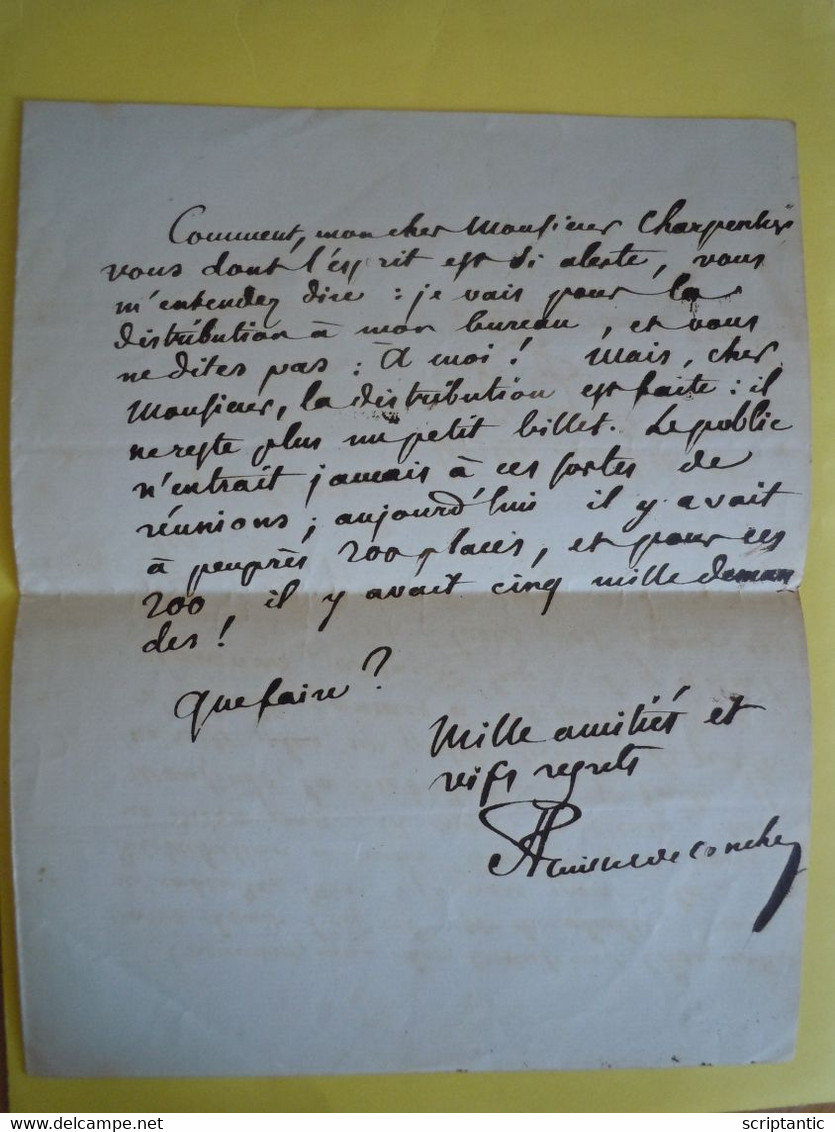 Comment, mon cher Monsieur Charpentier
vous dont l'esprit est si alerte, vous
m'entendez dire : je vais pour la
distribution à mon bureau, et vous
ne dites pas : À moi ! Mais, cher
Monsieur, la distribution est faite : il
ne reste plus un petit billet. Le public
n'entrait jamais à ces sortes de
réunions ; aujourd'hui il y avait
à peu près 200 places, et pour ces
200 il y avait cinq mille deman
des !
Que faire ?
Mille amitiés et
vifs regrets
F Feuillet de Conches
Delcampe.net
scriptantic